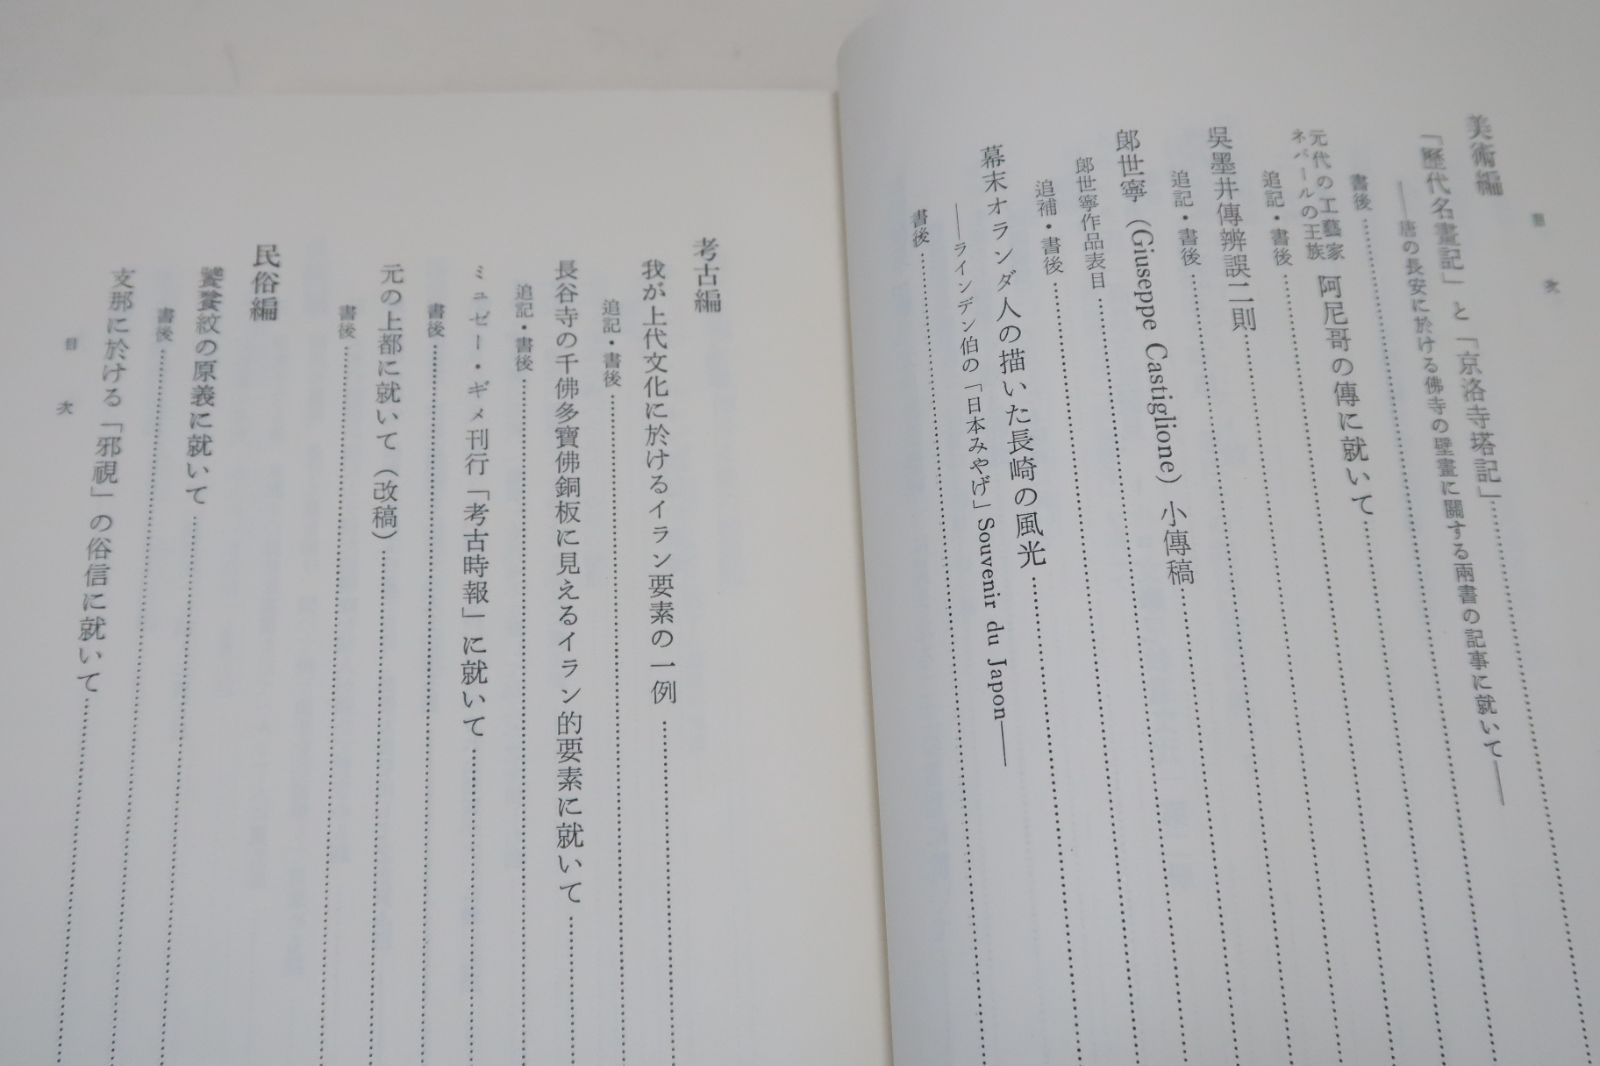 目次
美術編
「歷代名畫記」と「京洛寺塔記」
——唐の長安に於ける佛寺の壁畫に關する兩書の記事に就いて——
書後
元代の工藝家
ネパールの王族
阿尼哥の傳に就いて
追記・書後
吳墨井傳辨誤二則
追記・書後
郎世寧（Giuseppe Castiglione）小傳稿
郎世寧作品表目
追補・書後
幕末オランダ人の描いた長崎の風光
——ラインデン伯の「日本みやげ」Souvenir du Japon——
書後
考古編
我が上代文化に於けるイラン要素の一例
追記・書後
長谷寺の千佛多寶佛銅板に見えるイラン的要素に就いて
追記・書後
ミュゼー・ギメ刊行「考古時報」に就いて
書後
元の上都に就いて（改稿）
書後
民俗編
饕餮紋の原義に就いて
書後
支那に於ける「邪視」の俗信に就いて
目次